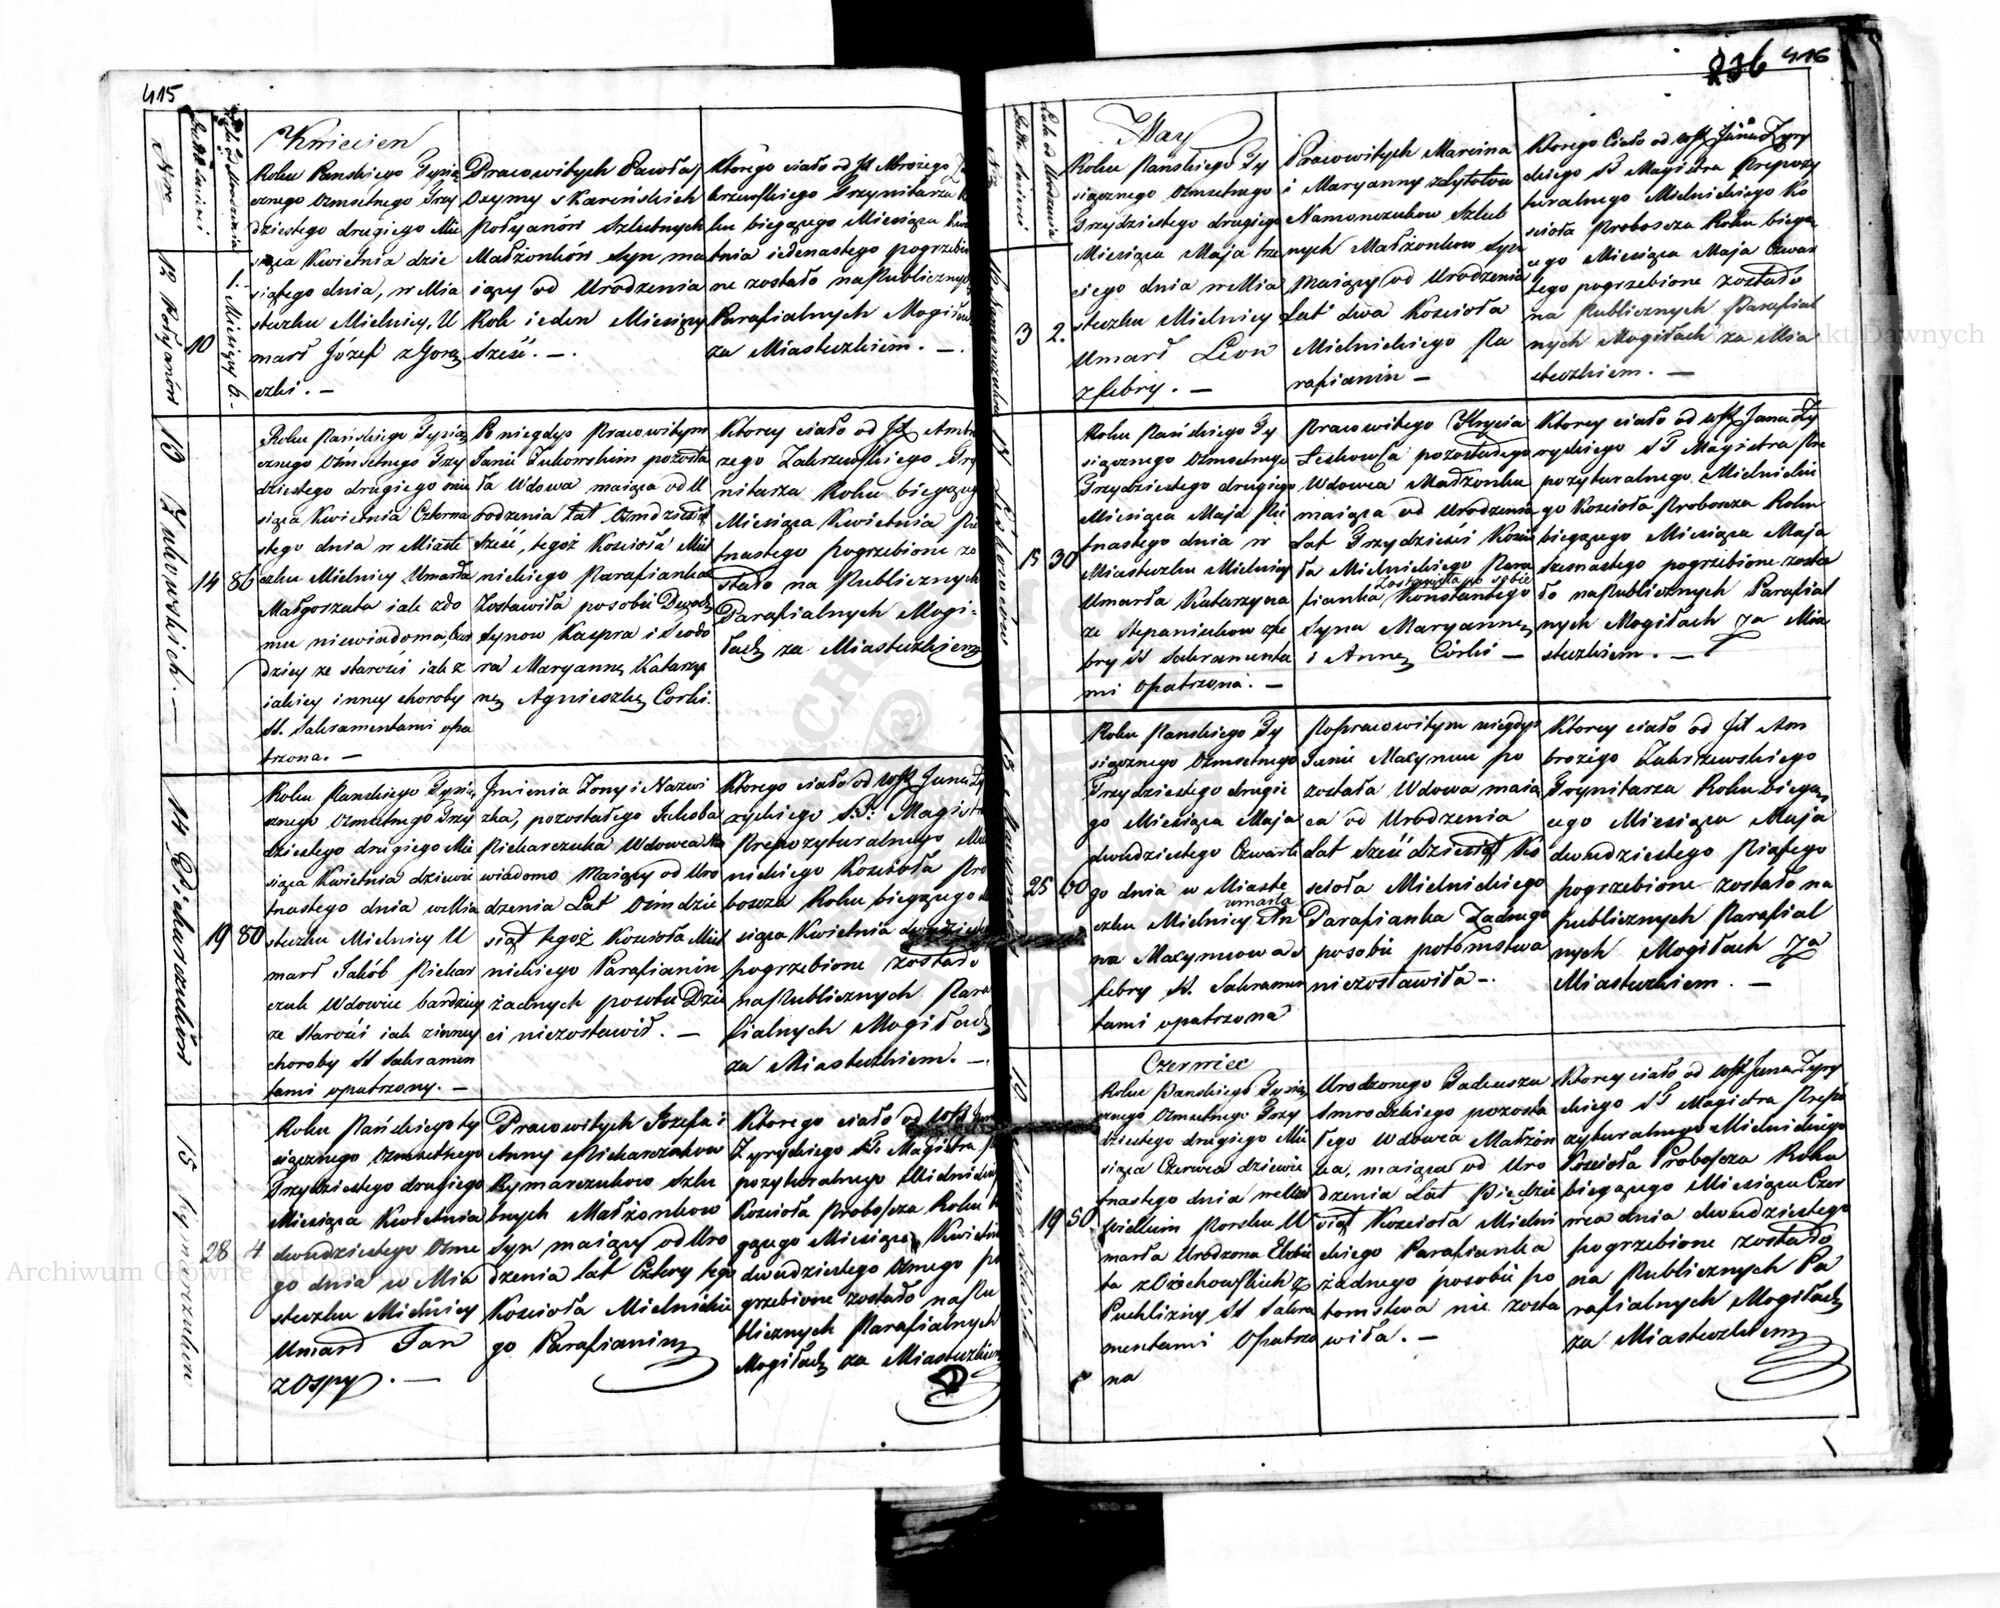 415
Nro
Kwiecien
Roku Panskiego Tysią
cznego Ozmsetnego Trzy
dziestego drugiego Mie
siąca Kwietnia dzie
siątego dnia, w Mia
steczku Mielnicy, U
marł Józef z Gorą
czki. —
Pracowitych Pawła i
Połyanów Szlubnych
Małżonków Syn ma
iący od Urodzenia
Rok ieden Miesięcy
Sześć. —.
ku biegącego Miesiąca
tnia iedenastego pogrzebio
ne zostało na Publicznych
Parafialnych Mogiłach
za Miasteczkiem. —.
12 Połyanów
10
1. Miesięcy 6.-
Roku Pańskiego Tysią
cznego Ozmsetnego Trzy
dziestego drugiego mie
siąca Kwietnia Czterna
stego dnia w Miaste
czku Mielnicy Umarła
Małgorzata iak z do
mu niewiadoma, bar
dziey ze starości iak z
iakiey inney choroby
SS. Sakramentami opa
trzona. —
Po niegdys Pracowitym
Janie Żukowskim pozosta
ła Wdowa maiąca od U
rodzenia Lat Ozmdziesiąt
Sześć, tegoż Kościoła Miel
nickiego Parafianka
Zostawiła po sobie Dwoch
Synow Kaspra i Teodo
ra Maryannę Katarzy
nę Agnieszkę Corki.
Ktorey ciało od Jx Ambro
żego Zakrzewskiego Try
nitarza Roku biegącego
Miesiąca Kwietnia Pię
tnastego pogrzebione zo
stało na Publicznych
Parafialnych Mogi=
łach za Miasteczkiem
13 Żukowskich. —
14
86
Roku Panskiego Tysią
cznego Ozmsetnego Trzy
dziestego drugiego Mie
siąca Kwietnia dziewię
tnastego dnia w Mia
steczku Mielnicy U
marł Jakób Piekar
czuk Wdowiec bardziey
ze Starości iak z inney
choroby SS Sakramen
tami opatrzony. —
Jmienia Zony i Nazwi
ska, pozostałego Jakoba
Piekarczuka Wdowca Nie
wiadomo Maiący od Uro
dzenia Lat Ośmdzie
siąt tegoż Kościoła Miel
nickiego Parafianin
żadnych po sobie Dzie
ci niezostawił. —
Ktorego ciało od Jana Ży
ryckiego S.T. Magistra
Prepozyturalnego Miel
nickiego Kościoła Pro
boszcza Roku biegącego
siąca Kwietnia
pogrzebione zostało
na Publicznych Para
fialnych Mogiłach
za Miasteczkiem. —.
14 Piekarczuków
19
80
Roku Pańskiego ty
siącznego Ozmsetnego
Trzydziestego drugiego
Miesiąca Kwietnia
dwudziestego Ozme
go dnia w Mia
steczku Mielnicy
Umarł Jan
z Ospy. —
Pracowitych Jozefa i
Anny Piekarczukow
Rymarczukow Szlu
bnych Małżonkow
Syn maiący od Uro
dzenia lat Cztery tego
Kościoła Mielnickie
go Parafianin
Ktorego ciało od Jana
Żyryckiego ST. Magistra
pozyturalnego Mielnickiego
Kościoła Proboszcza Roku
gącego Miesiąca Kwietnia
dwudziestego Ozmego po
grzebione zostało na Pu
blicznych Parafialnych
Mogiłach za Miasteczkiem
15 Rymarczukow
28
4
236 416
May
Roku Panskiego Ty
siącznego Ozmsetnego
Trzydziestego drugiego
Miesiąca Maja trze
ciego dnia w Mia
steczku Mielnicy
Umarł Leon
z febry. —
Pracowitych Marcina
i Maryanny
Namonczukow Szlub
nych Małżonkow Syn
Maiący od Urodzenia
Lat dwa Kościoła
Mielnickiego Pa
rafianin —
Ktorego Ciało od Jana Żyry
ckiego ST Magistra Prepozy
turalnego Mielnickiego Ko
ścioła Proboszcza Roku biegą
cego Miesiąca Maja Czwar
tego pogrzebione zostało
na Publicznych Parafial
nych Mogiłach za Mia
steczkiem. —
3
2.
Roku Pańskiego Ty
siącznego Ozmsetnego
Trzydziestego drugiego
Miesiąca Maja Pię
tnastego dnia w
Miasteczku Mielnicy
Umarła Katarzyna
ze Stepaniukow z fe
bry SS Sakramenta
mi Opatrzona. —
Pracowitego
pozostałego
Wdowca Małżonka
maiąca od Urodzenia
Lat Trzydzieści Kościo
ła Mielnickiego Para
fianka Zostawiła po sobie Konstantego
Syna Maryannę
i Annę Córki —
Ktorey ciało od Jana Ży
ryckiego ST Magistra Pre
pozyturalnego Mielnickie
go Kościoła Proboszcza Roku
biegącego Miesiąca Maja
Szesnastego pogrzebione zosta
ło na Publicznych Parafial
nych Mogiłach za Mia
steczkiem. —
15
30
Roku Panskiego Ty
siącznego Ozmsetnego
Trzydziestego drugie
go Miesiąca Maja
dwudziestego Czwarte
go dnia w Miaste
czku Mielnicy umarła An
na Macyniowa z
febry SS. Sakramen
tami opatrzona
Po Pracowitym niegdys
Janie po
zostałа Wdowa maią
ca od Urodzenia
Lat Sześćdziesiąt Ko
ścioła Mielnickiego
Parafianka Żadnego
po sobie potomstwa
niezostawiła —.
Ktorey ciało od Jx Am
brożego Zakrzewskiego
Trynitarza Roku biegą
cego Miesiąca Maja
dwudziestego Piątego
pogrzebione zostało na
publicznych Parafial
nych Mogiłach Za
Miasteczkiem. —
25
60
Czerwiec
Roku Panskiego Tysią
cznego Ozmsetnego Trzy
dziestego drugiego Mie
siąca Czerwca dziewię
tnastego dnia we Wsi
Wielkim Porsku U
marła Urodzona Elżbie
ta z Ożechowskich z
Puchliny SS Sakra
mentami Opatrzo
na
Urodzonego Tadeusza
Smrodzkiego pozosta
łego Wdowca Małżon
ka, maiąca od Uro
dzenia Lat Pięćdzie
siąt Kościoła Mielni
ckiego Parafianka
żadnego po sobie po
tomstwa nie zosta
wiła. —
Ktorey ciało od Jana Żyry
ckiego ST Magistra Prepo
zyturalnego Mielnickiego
Kościoła Proboszcza Roku
biegącego Miesiąca Czer
wca dnia dwudziestego
pogrzebione zostało
na Publicznych Pa
rafialnych Mogiłach
za Miasteczkiem
19
50
Archiwum Główne Akt Dawnych
Archiwum Główne Akt Dawnych